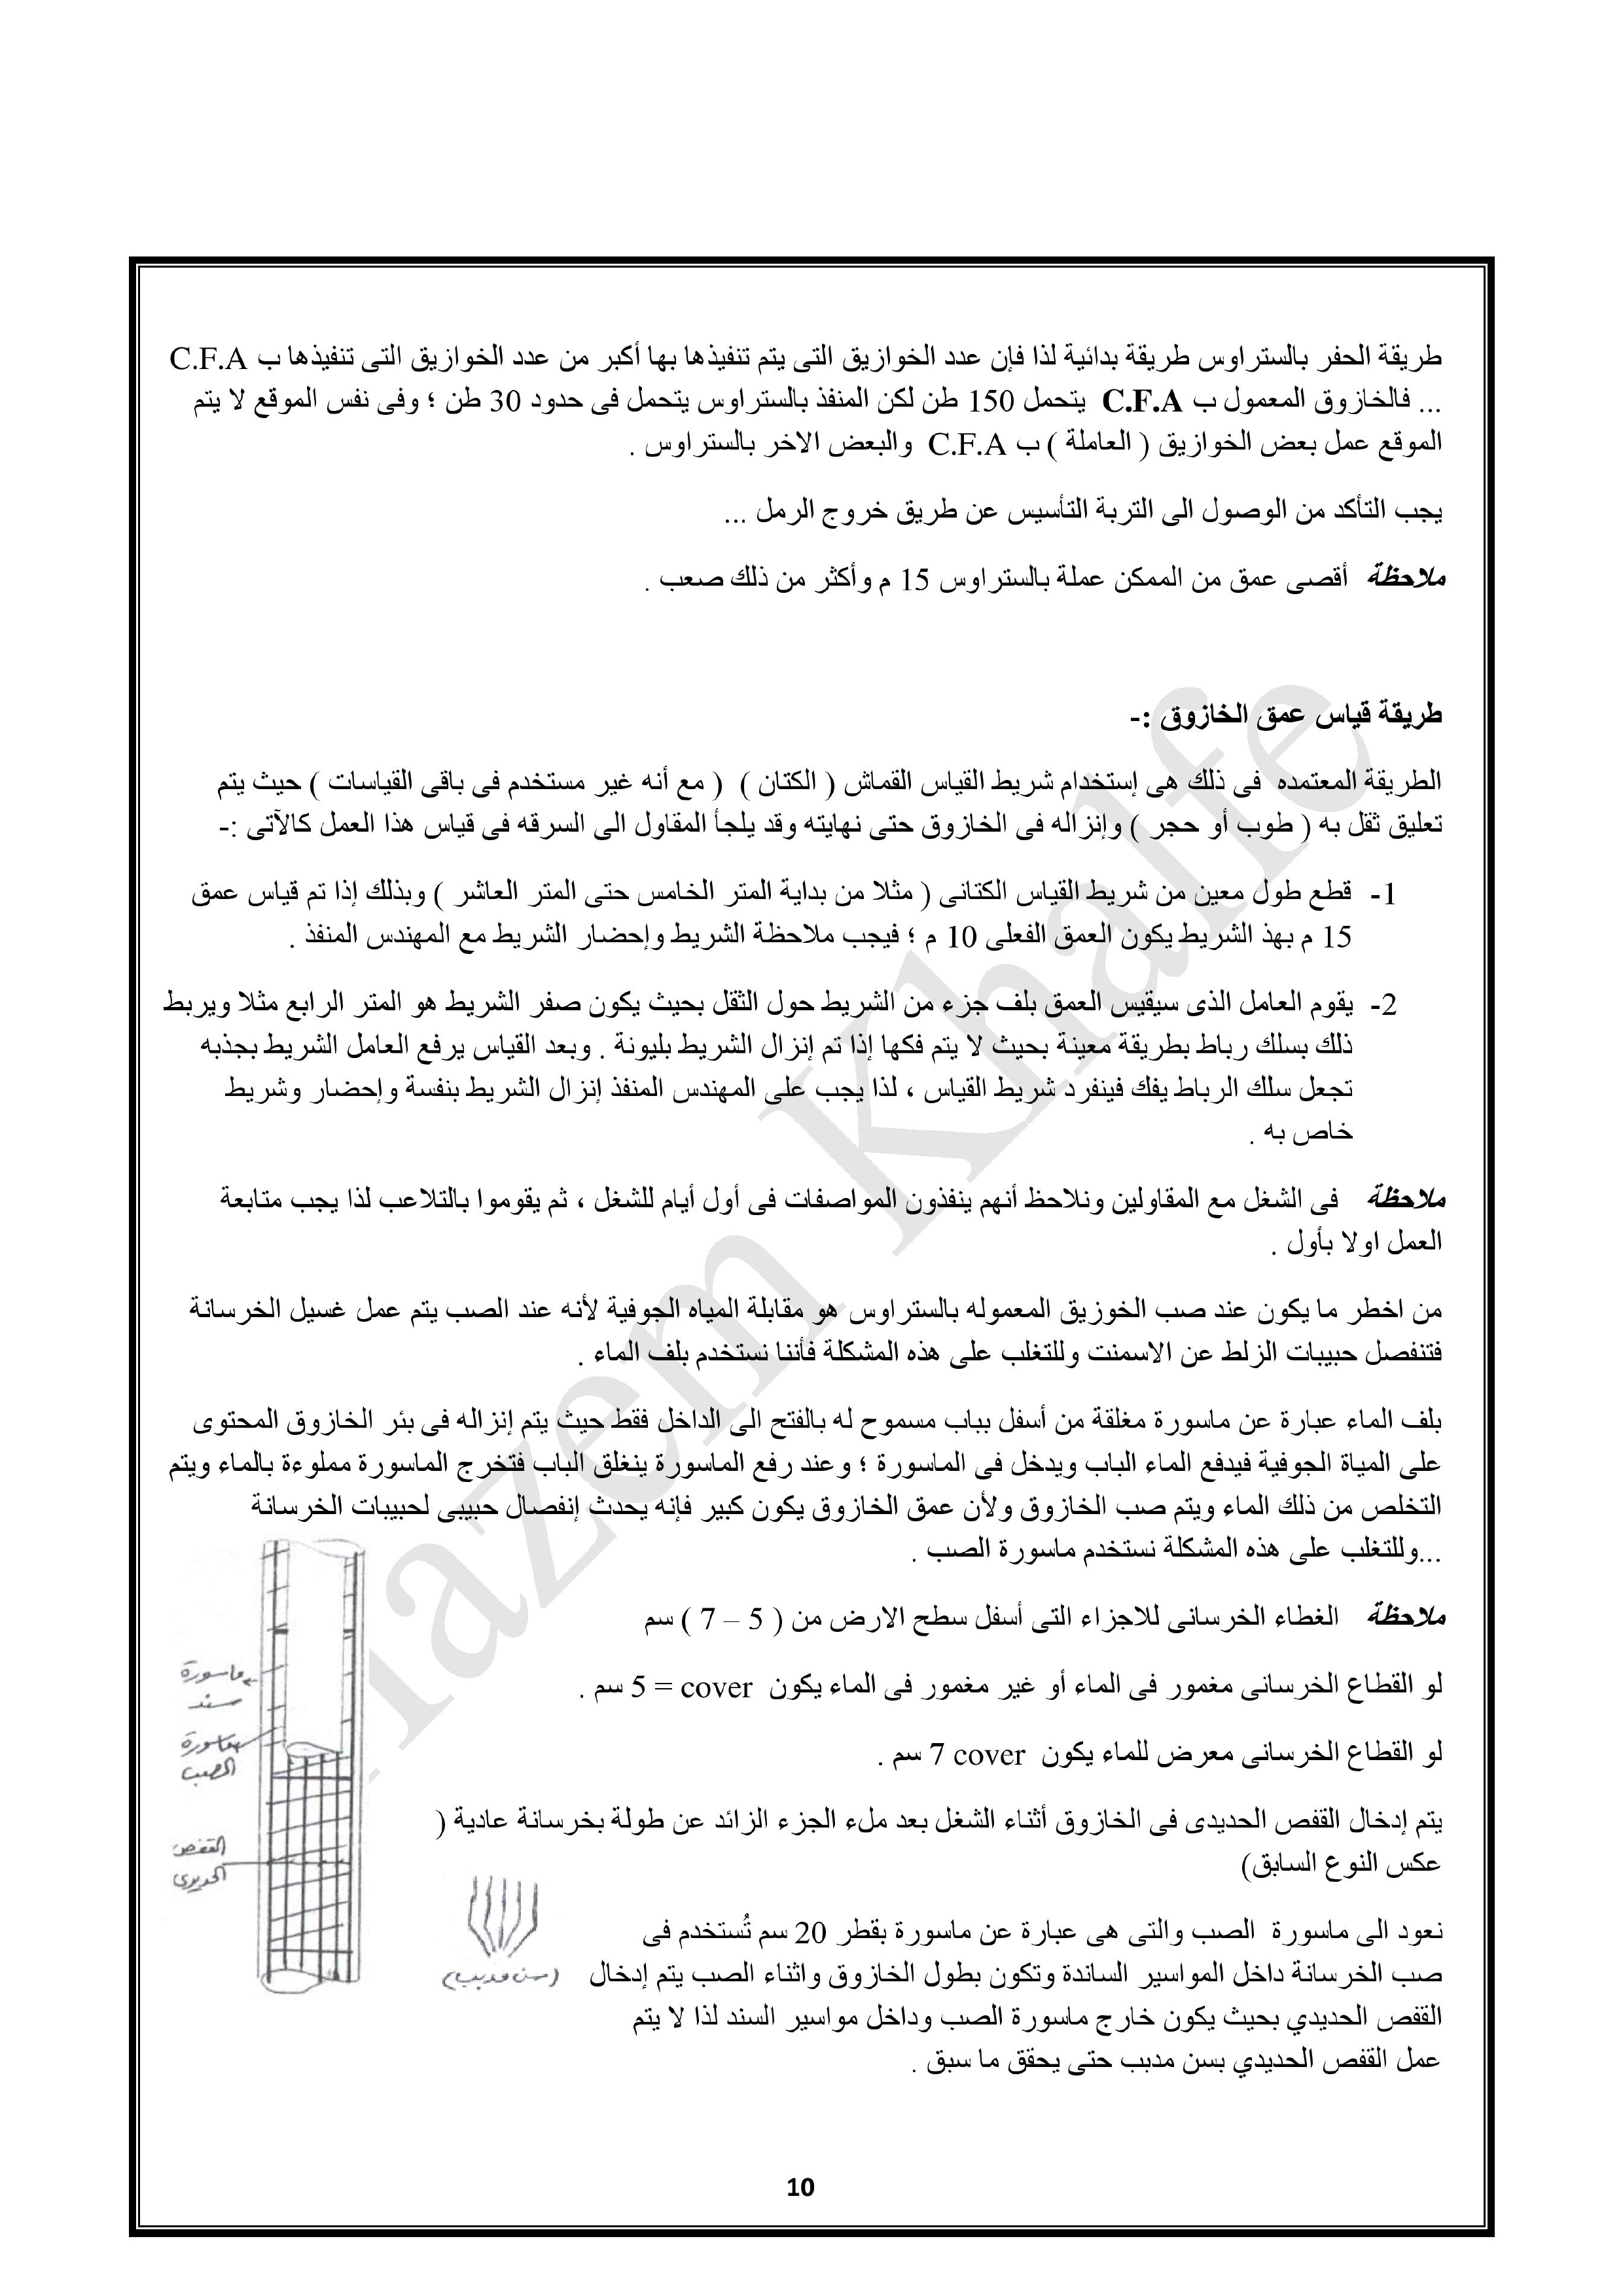 طريقة الحفر بالستراوس طريقة بدائية لذا فإن عدد الخوازيق التى يتم تنفيذها بها أكبر من عدد الخوازيق التى تنفيذها ب C.F.A
... فالخازوق المعمول ب C.F.A يتحمل 150 طن لكن المنفذ بالستراوس يتحمل فى حدود 30 طن ؛ وفى نفس الموقع لا يتم
الموقع عمل بعض الخوازيق ( العاملة ) ب C.F.A والبعض الاخر بالستراوس .
يجب التأكد من الوصول الى التربة التأسيس عن طريق خروج الرمل ...
ملاحظة أقصى عمق من الممكن عملة بالستراوس 15 م وأكثر من ذلك صعب .
طريقة قياس عمق الخازوق :-
الطريقة المعتمده فى ذلك هى إستخدام شريط القياس القماش ( الكتان ) ( مع أنه غير مستخدم فى باقى القياسات ) حيث يتم
تعليق ثقل به ( طوب أو حجر ) وإنزاله فى الخازوق حتى نهايته وقد يلجأ المقاول الى السرقه فى قياس هذا العمل كالآتى :-
1- قطع طول معين من شريط القياس الكتانى ( مثلا من بداية المتر الخامس حتى المتر العاشر ) وبذلك إذا تم قياس عمق
15 م بهذ الشريط يكون العمق الفعلى 10 م ؛ فيجب ملاحظة الشريط وإحضار الشريط مع المهندس المنفذ .
2- يقوم العامل الذى سيقيس العمق بلف جزء من الشريط حول الثقل بحيث يكون صفر الشريط هو المتر الرابع مثلا ويربط
ذلك بسلك رباط بطريقة معينة بحيث لا يتم فكها إذا تم إنزال الشريط بليونة . وبعد القياس يرفع العامل الشريط بجذبه
تجعل سلك الرباط يفك فينفرد شريط القياس ، لذا يجب على المهندس المنفذ إنزال الشريط بنفسة وإحضار وشريط
خاص به .
ملاحظة فى الشغل مع المقاولين ونلاحظ أنهم ينفذون المواصفات فى أول أيام للشغل ، ثم يقوموا بالتلاعب لذا يجب متابعة
العمل اولا بأول .
من اخطر ما يكون عند صب الخوزيق المعموله بالستراوس هو مقابلة المياه الجوفية لأنه عند الصب يتم عمل غسيل الخرسانة
فتنفصل حبيبات الزلط عن الاسمنت وللتغلب على هذه المشكلة فأننا نستخدم بلف الماء .
بلف الماء عبارة عن ماسورة مغلقة من أسفل بباب مسموح له بالفتح الى الداخل فقط حيث يتم إنزاله فى بئر الخازوق المحتوى
على المياة الجوفية فيدفع الماء الباب ويدخل فى الماسورة ؛ وعند رفع الماسورة ينغلق الباب فتخرج الماسورة مملوءة بالماء ويتم
التخلص من ذلك الماء ويتم صب الخازوق ولأن عمق الخازوق يكون كبير فإنه يحدث إنفصال حبيبى لحبيبات الخرسانة
...وللتغلب على هذه المشكلة نستخدم ماسورة الصب .
ملاحظة الغطاء الخرسانى للاجزاء التى أسفل سطح الارض من ( 5 – 7 ) سم
لو القطاع الخرسانى مغمور فى الماء أو غير مغمور فى الماء يكون cover = 5 سم .
لو القطاع الخرسانى معرض للماء يكون cover 7 سم .
يتم إدخال القفص الحديدى فى الخازوق أثناء الشغل بعد ملء الجزء الزائد عن طولة بخرسانة عادية (
عكس النوع السابق)
نعود الى ماسورة الصب والتى هى عبارة عن ماسورة بقطر 20 سم تُستخدم فى
صب الخرسانة داخل المواسير الساندة وتكون بطول الخازوق واثناء الصب يتم إدخال
القفص الحديدي بحيث يكون خارج ماسورة الصب وداخل مواسير السند لذا لا يتم
عمل القفص الحديدي بسن مدبب حتى يحقق ما سبق .
ماسورة
سند
ماسورة
الصب
القفص
الحديدى
(سن مدبب)
10